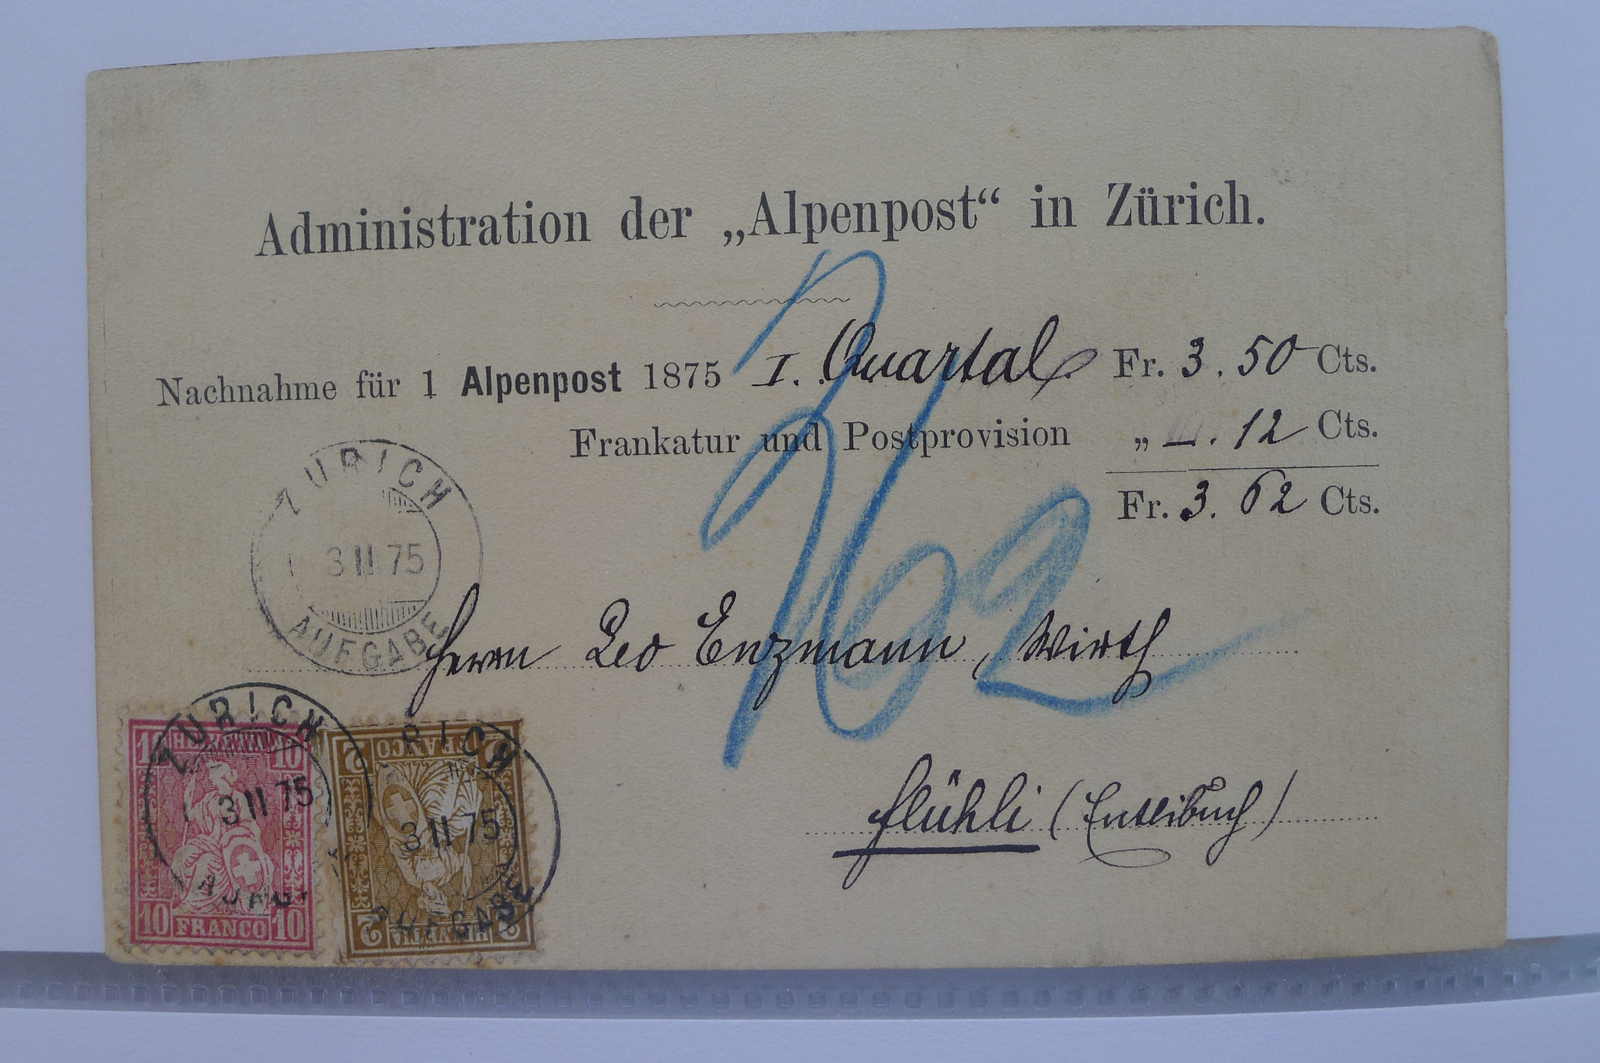 Administration der „Alpenpost“ in Zürich.
Nachnahme für 1 Alpenpost 1875 I. Quartal Fr. 3. 50 Cts.
Frankatur und Postprovision „ —. 12 Cts.
Fr. 3. 62 Cts.
362
ZURICH
3 II 75
AUFGABE
Herrn Leo Enzmann, Wirth
Flühli (Entlibuch)
ZURICH
3 II 75
10 HELVETIA 10
10 FRANCO 10
RICH
3 II 75
AUFGABE
2 FRANCO 2
2 HELVETIA 2